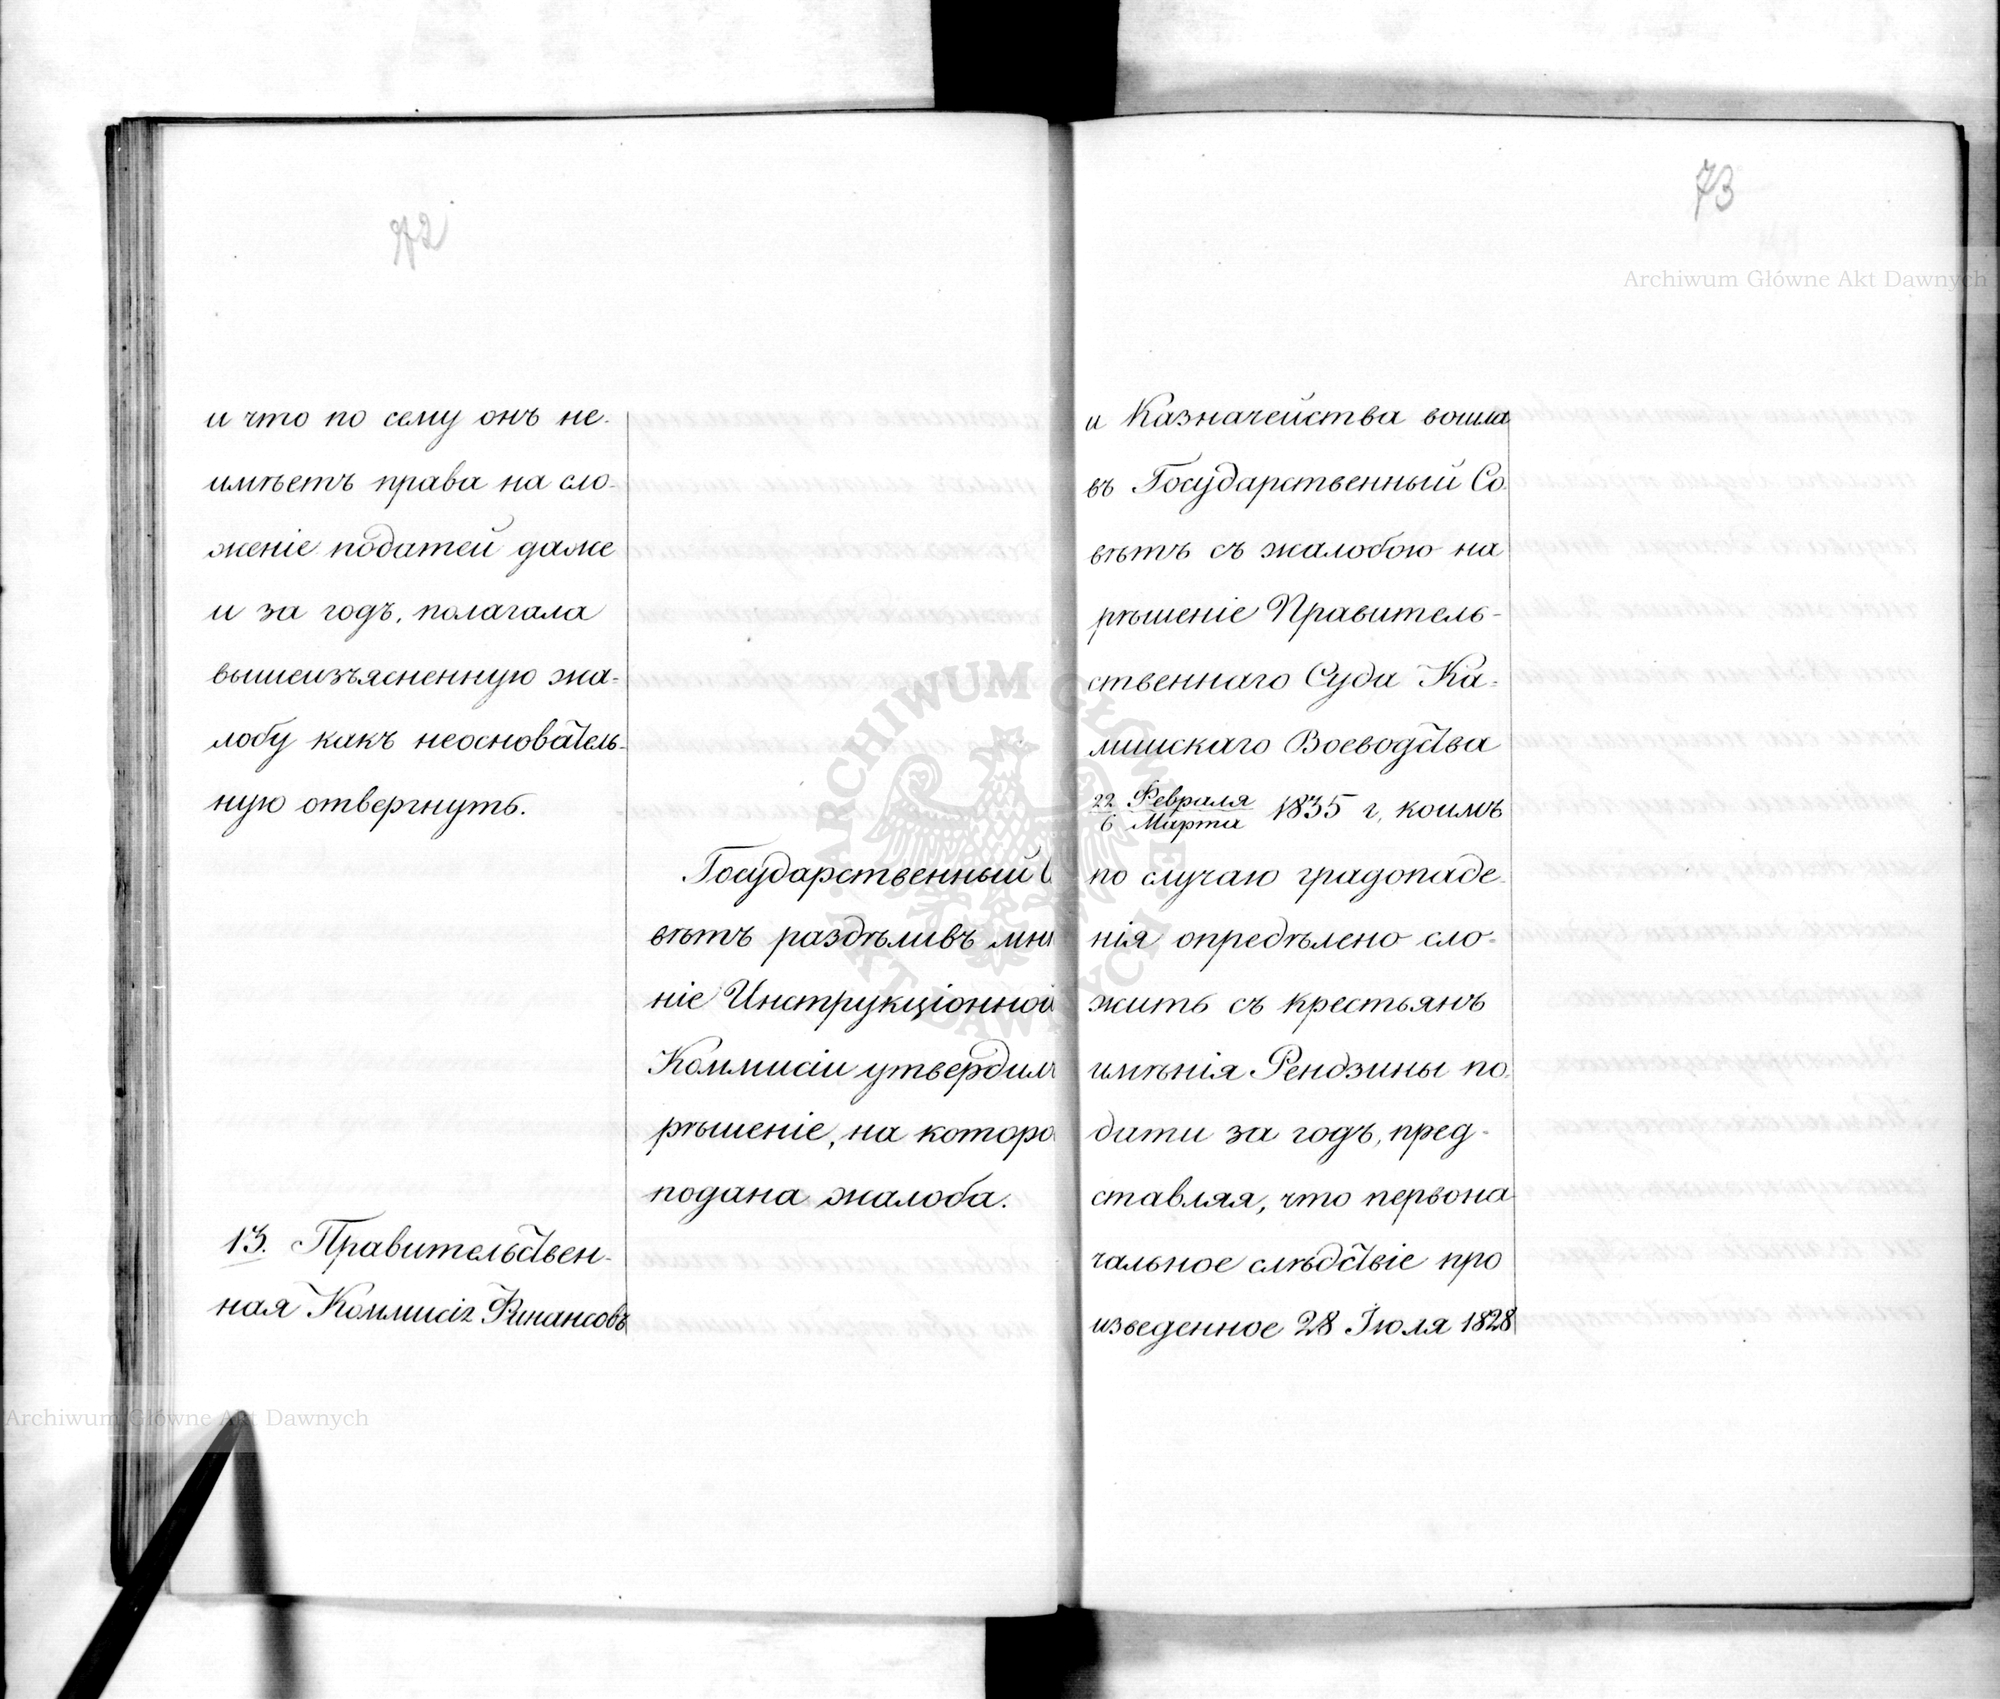 72
и что по сему онъ не-
имѣетъ права на сло-
женіе податей даже
и за годъ, полагала
вышеизъясненную жа-
лобу какъ неоснователь-
ную отвергнуть.
Государственный С
вѣтъ раздѣливъ мнѣ
ніе Инструкціонной
Коммисіи утвердилъ
рѣшеніе, на которо
подана жалоба.
13. Правительствен-
ная Коммисія Финансовъ
73
и Казначейства вошла
въ Государственный Со-
вѣтъ съ жалобою на
рѣшеніе Правитель-
ственнаго Суда Ка-
лишскаго Воеводства
22 Февраля
6 Марта 1835 г, коимъ
по случаю градопаде-
нія опредѣлено сло-
жить съ крестьянъ
имѣнія Рендзины по-
дати за годъ, пред-
ставляя, что первона
чальное слѣдствіе про
изведенное 28 Іюля 1828
Archiwum Główne Akt Dawnych
ARCHIWUM GŁÓWNE AKT DAWNYCH
Archiwum Główne Akt Dawnych